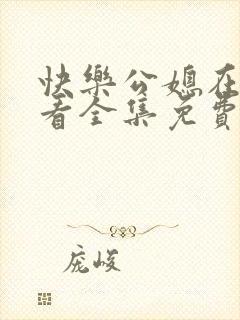 快樂公媳在
看全集免費
庞峻